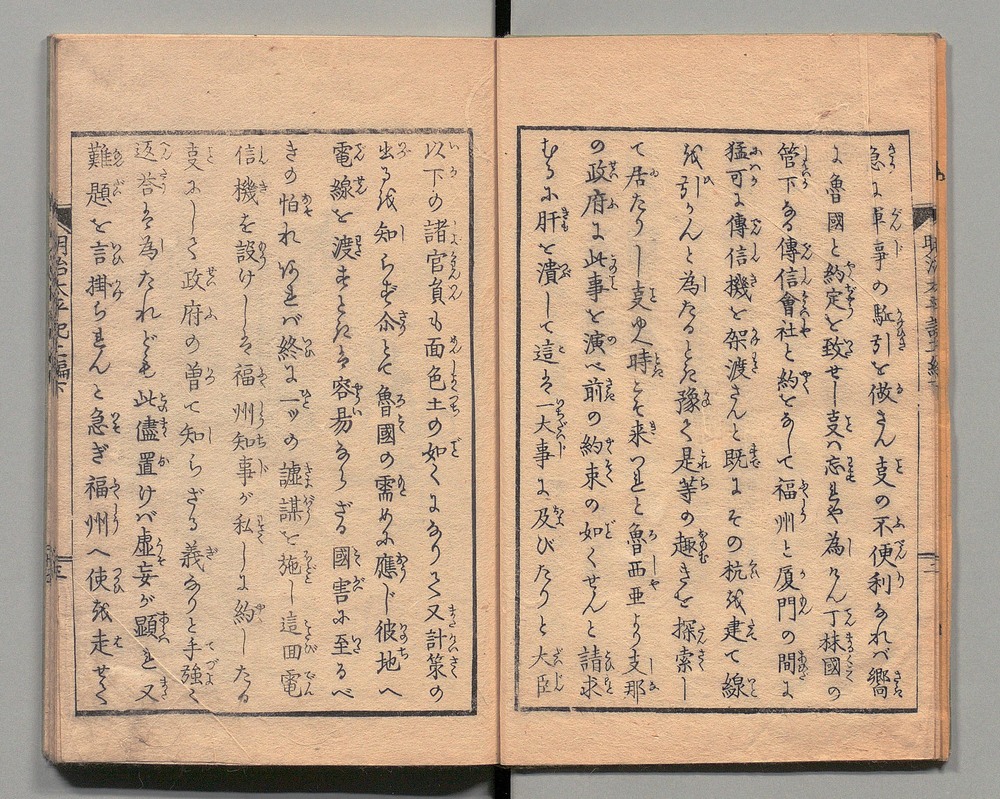 急に軍事の駈引を做さん支の不便利なれバ嚮
に魯國と約定を致せし支ハ忘れや為けん丁抹國の
管下なる傳信會社と約をなして福州と厦門の間に
猛可に傳信機を架渡さんと既にその杭を建て線
を引かんと為たるとき豫て是等の趣きを探索し
て居たりし支ゆへ時こそ来つれと魯西亜より支那
の政府に此事を演べ前の約束の如くせんと請求
むるに肝を潰して這は一大事に及びたりと大臣
以下の諸官負も面色土の如くになりて又計策の
出るを知らず介とて魯國の需めに應じ彼地へ
電線を渡すときは容易ならざる國害に至るべ
きの怕れあれバ終に一ツの謔謀を施し這回電
信機を設けしは福州知事が私しに約したる
支にして政府の曽て知らざる義なりと手強く
返答は為たれども此儘置けバ虚妄が顕れ又
難題を言掛られんと急ぎ福州へ使を走せて
明治太平記十編下